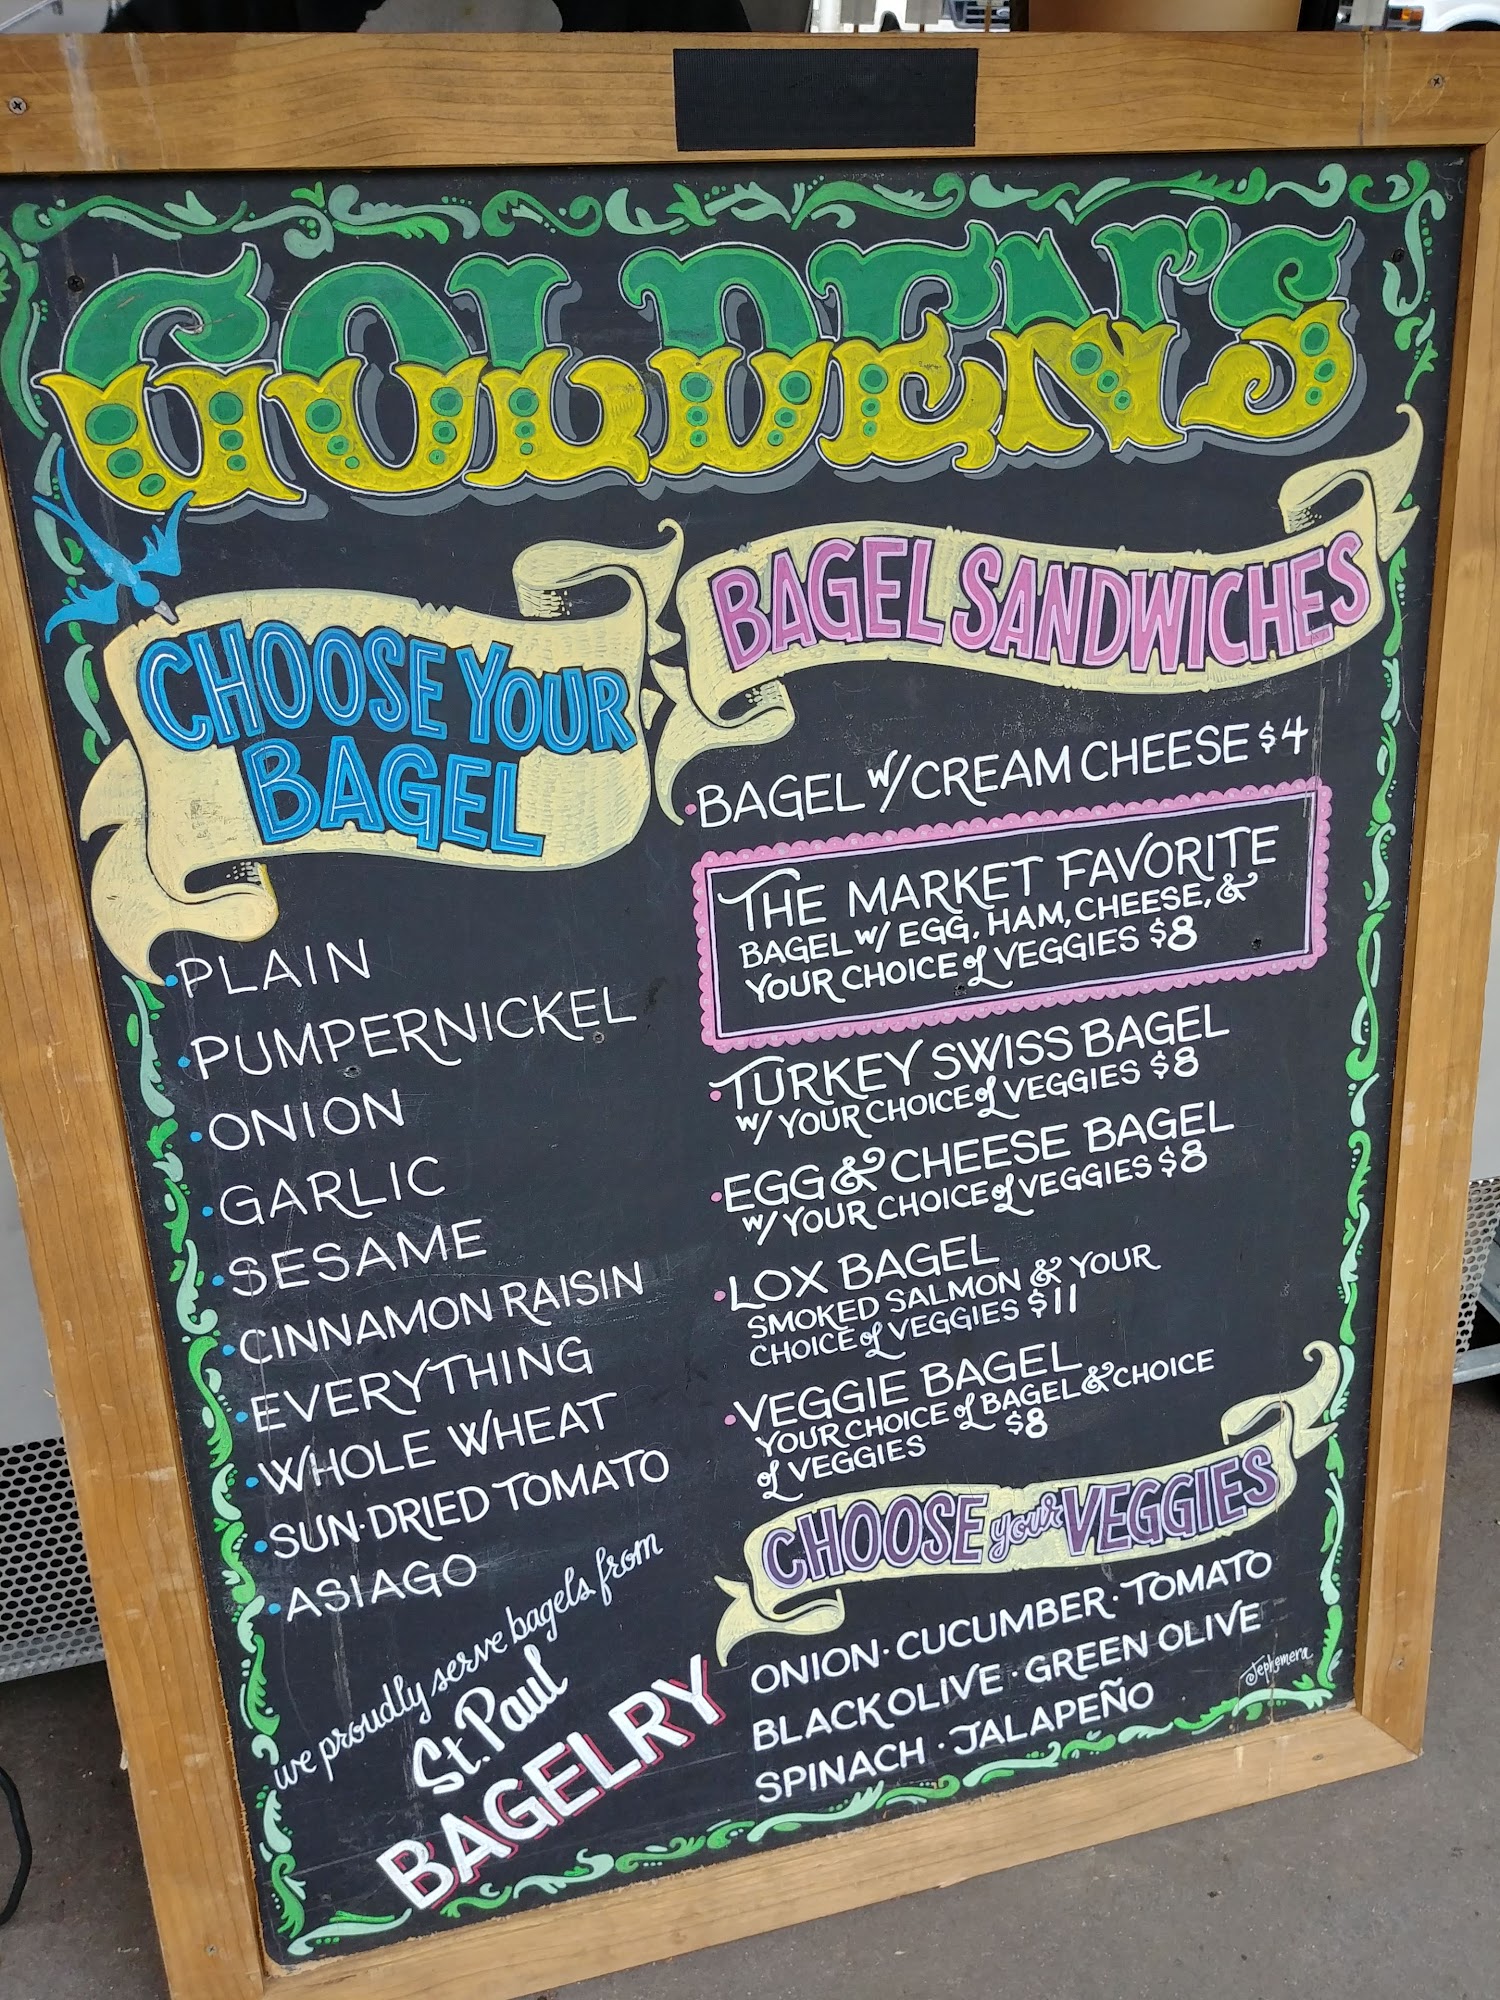 GOLDEN'S
CHOOSE YOUR
BAGEL
• PLAIN
• PUMPERNICKEL
• ONION
• GARLIC
• SESAME
• CINNAMON RAISIN
• EVERYTHING
• WHOLE WHEAT
• SUN·DRIED TOMATO
• ASIAGO
we proudly serve bagels from
St. Paul
BAGELRY
BAGEL SANDWICHES
• BAGEL W/ CREAM CHEESE $4
THE MARKET FAVORITE
BAGEL W/ EGG, HAM, CHEESE, &
YOUR CHOICE of VEGGIES $8
• TURKEY SWISS BAGEL
W/ YOUR CHOICE of VEGGIES $8
• EGG & CHEESE BAGEL
W/ YOUR CHOICE of VEGGIES $8
• LOX BAGEL
SMOKED SALMON & YOUR
CHOICE of VEGGIES $11
• VEGGIE BAGEL
YOUR CHOICE of BAGEL & CHOICE
of VEGGIES $8
CHOOSE your VEGGIES
ONION · CUCUMBER · TOMATO
BLACK OLIVE · GREEN OLIVE
SPINACH · JALAPEÑO
Jephemera